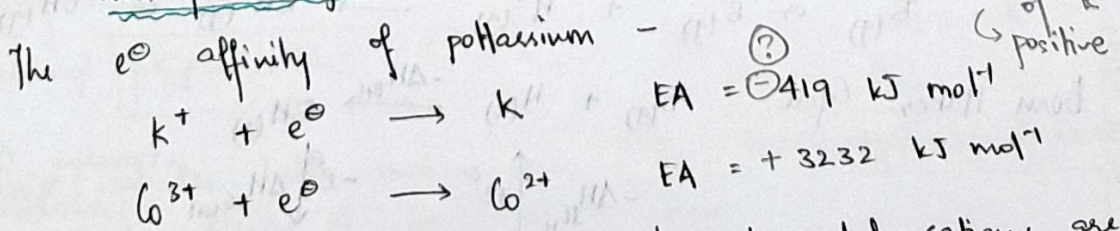 The e⊖ affinity of pottassium -
↳ of
positive
?
K⁺ + e⊖ → K EA = ⊖419 kJ mol⁻¹
Co³⁺ + e⊖ → Co²⁺ EA = + 3232 kJ mol⁻¹
cations are